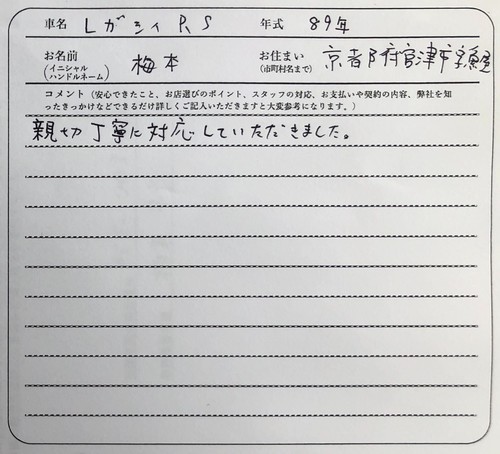 車名 レガシィ RS 年式 89年
お名前 (イニシャル ハンドルネーム) 梅本 お住まい (市町村名まで) 京都府宮津市字魚屋
コメント（安心できたこと、お店選びのポイント、スタッフの対応、お支払いや契約の内容、弊社を知
ったきっかけなどできるだけ詳しくご記入いただきますと大変参考になります。）
親切丁寧に対応していただきました。